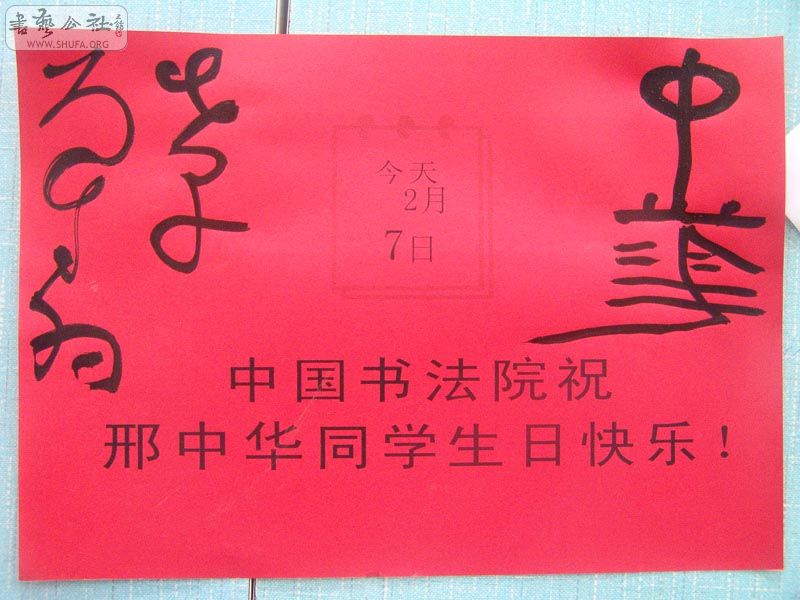 書藝公社
WWW.SHUFA.ORG
中華
今天
2月
7日
中国书法院祝
邢中华同学生日快乐！